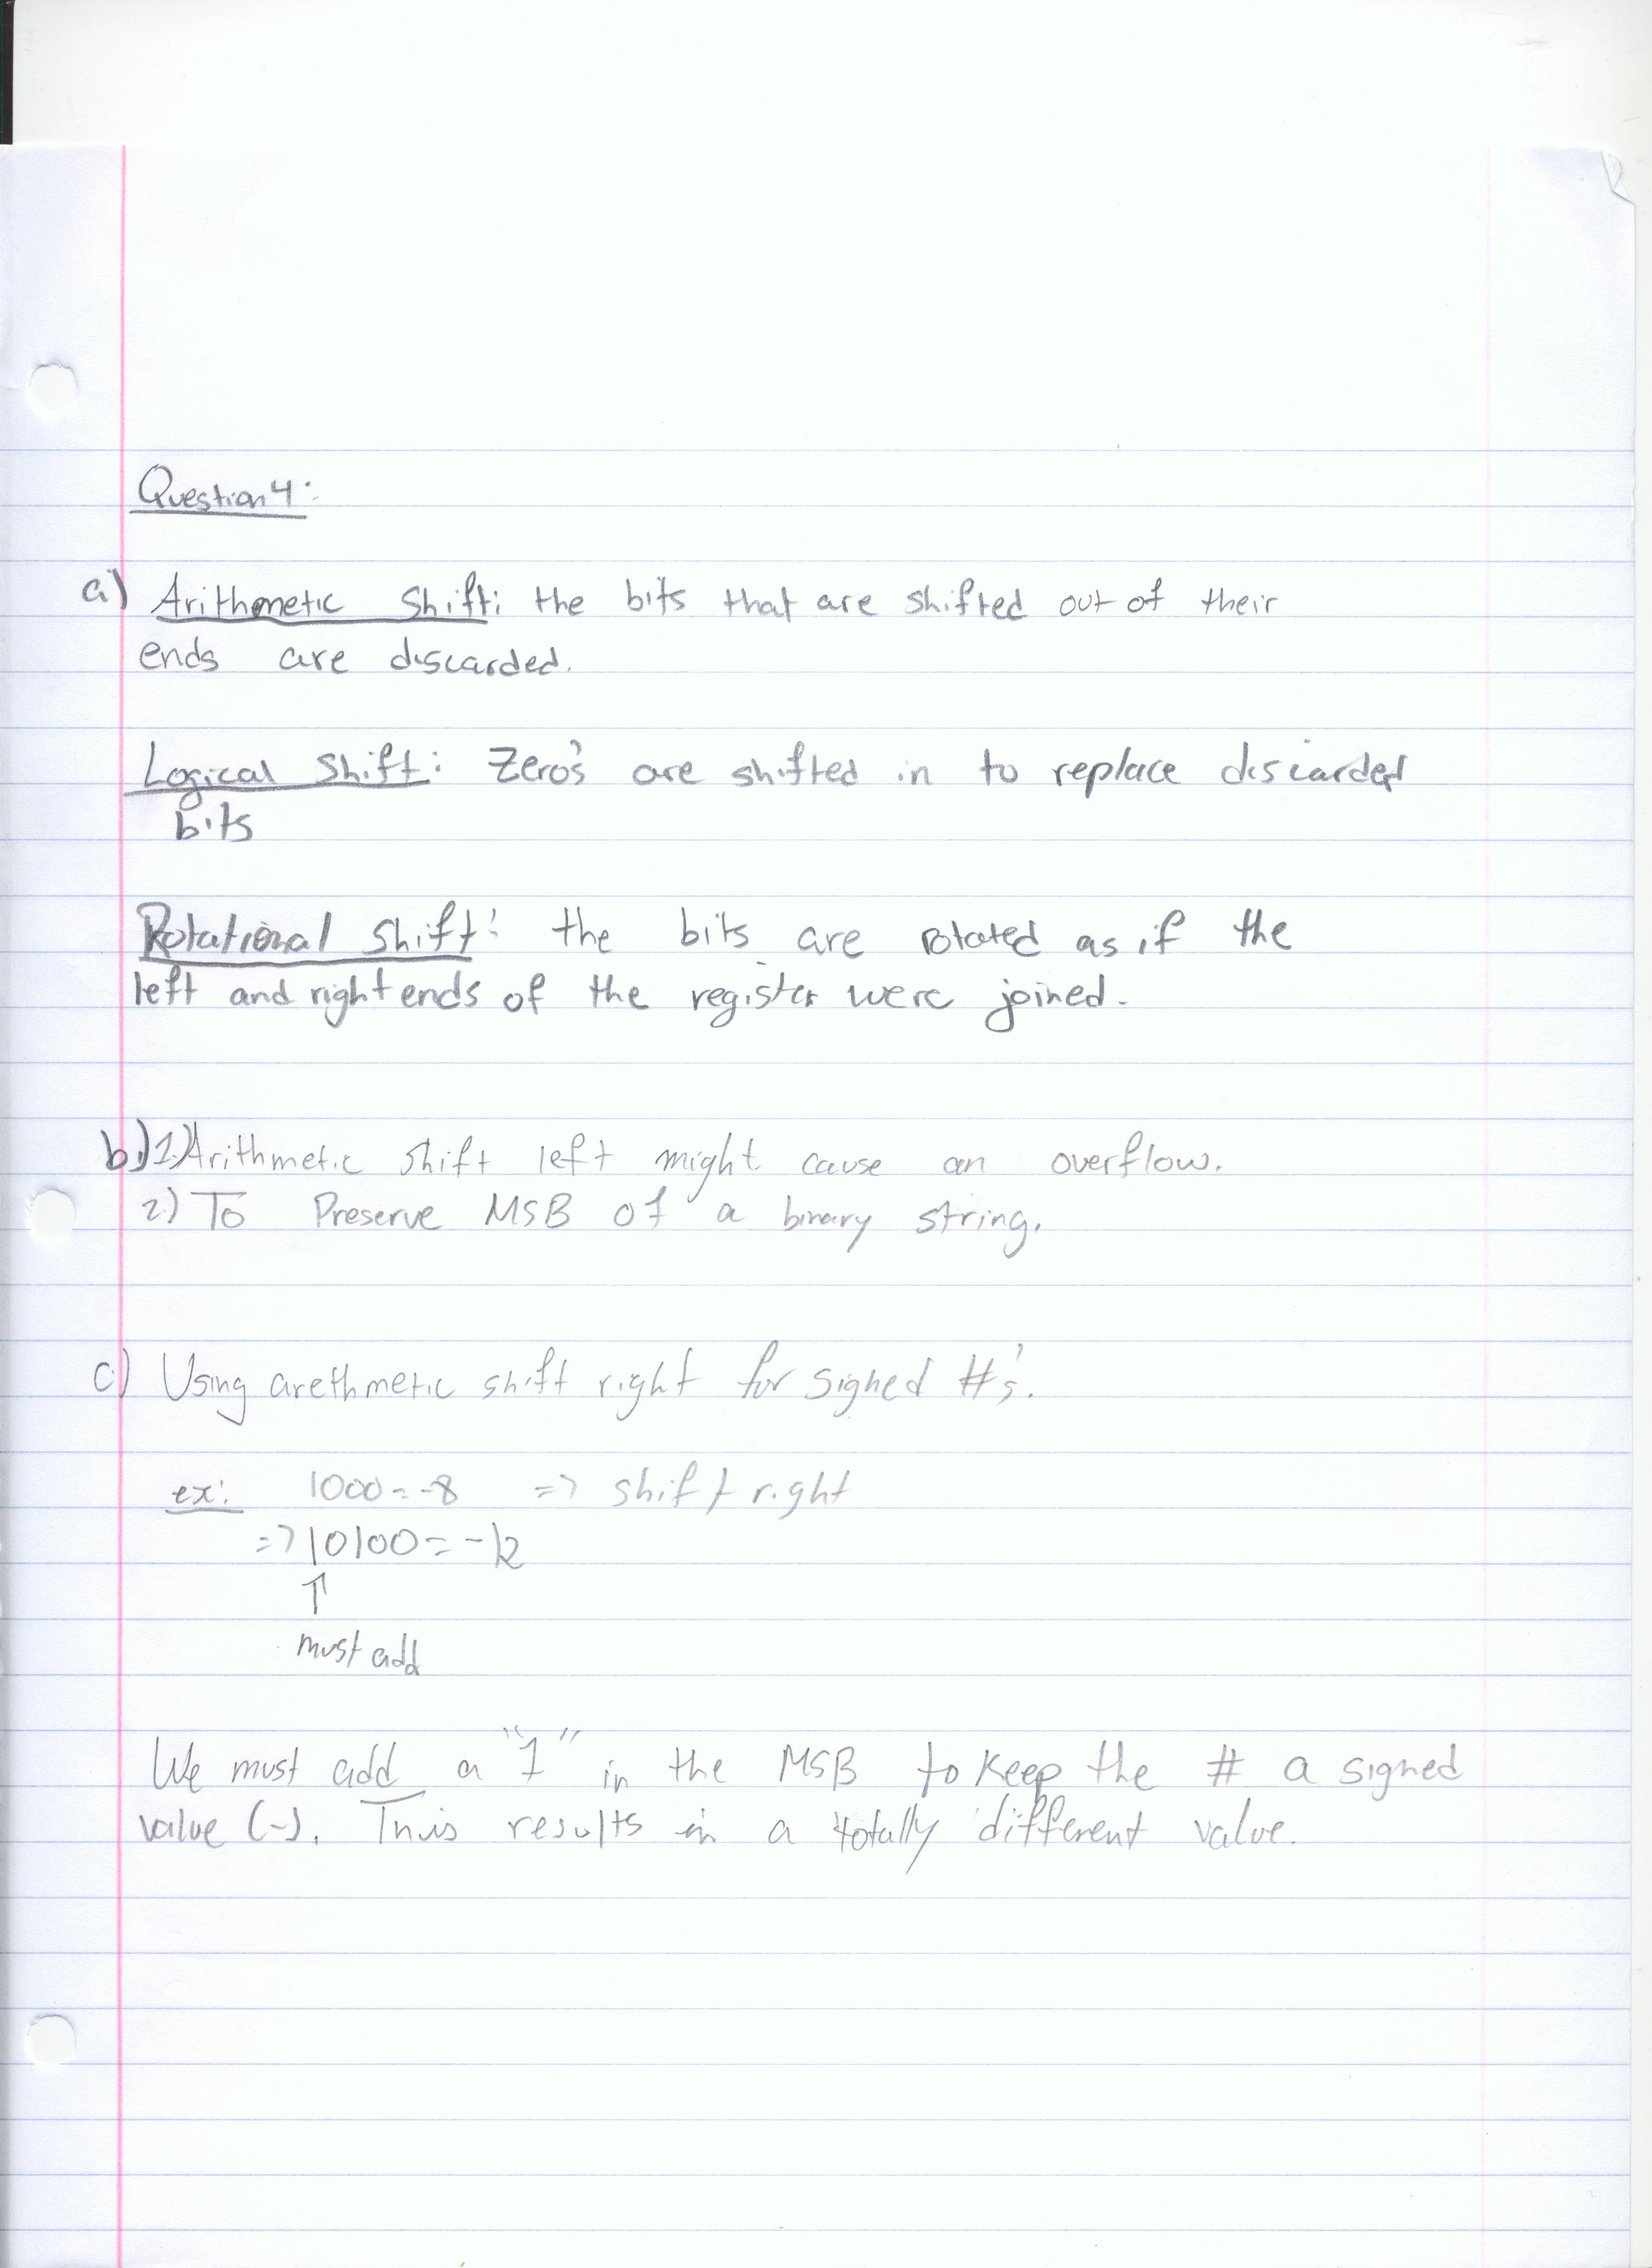 Question 4:
a) Arithmetic Shift: the bits that are shifted out of their
ends are discarded.
Logical Shift: Zero's are shifted in to replace discarded
bits
Rotational Shift: the bits are rotated as if the
left and right ends of the register were joined.
b) 1) Arithmetic shift left might cause an overflow.
2) To Preserve MSB of a binary string.
c) Using arethmetic shift right for signed #'s.
ex: 1000 = -8 => shift right
=> 10100 = -12
↑
must add
We must add a "1" in the MSB to keep the # a signed
value (-). This results in a totally different value.